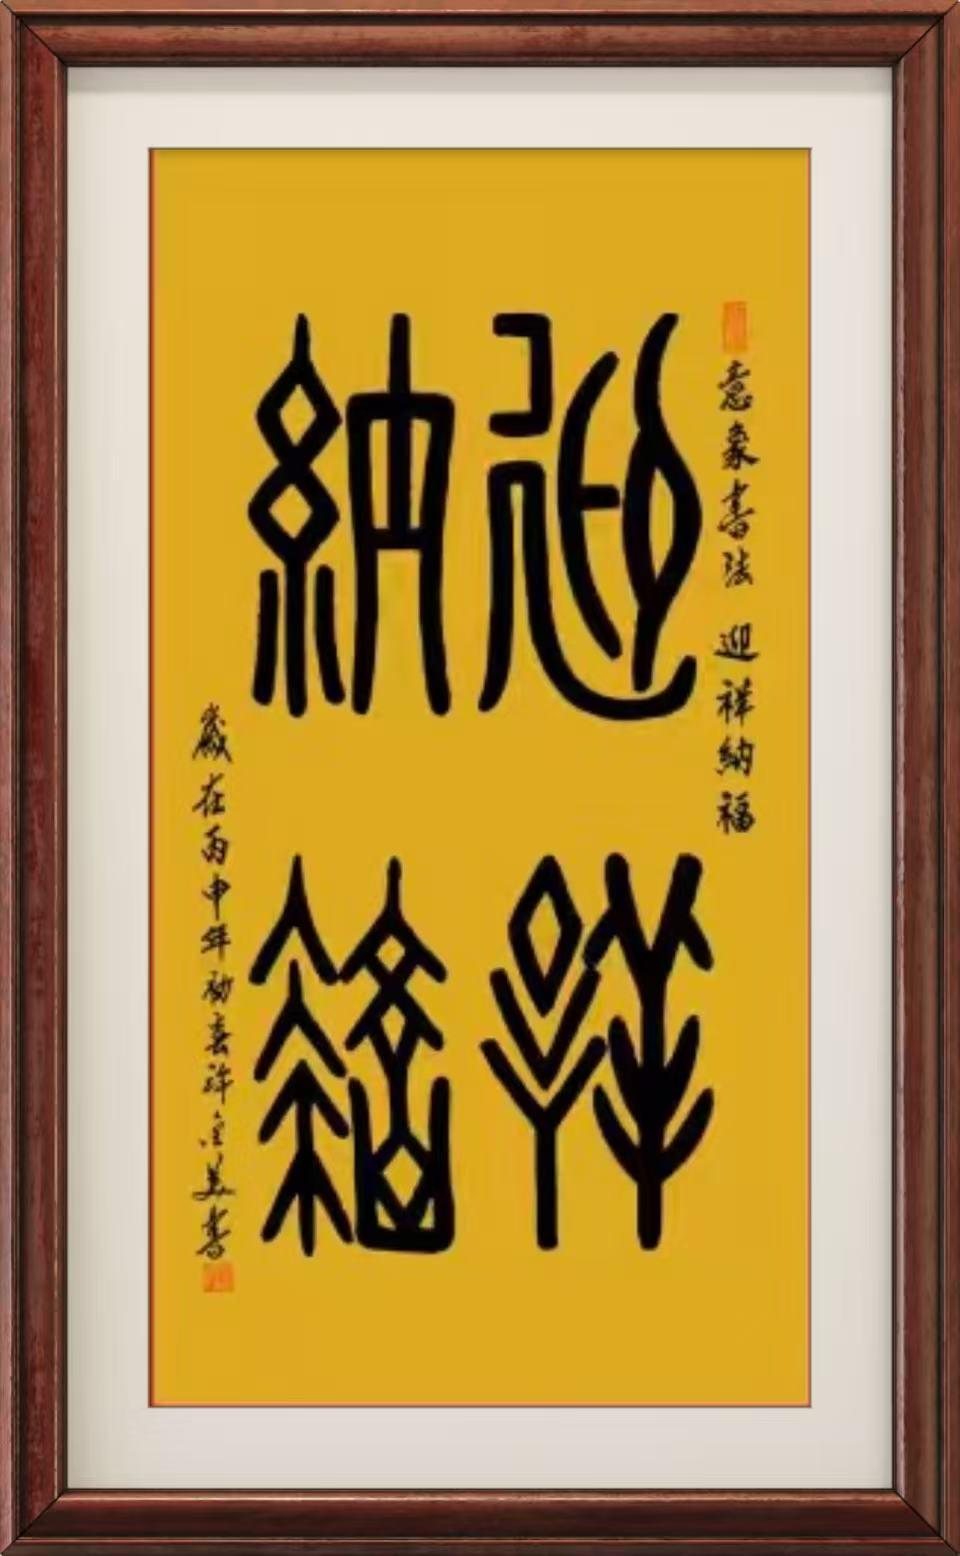 意象書法 迎祥納福
迎祥
納福
歲在丙申年初春許金美書